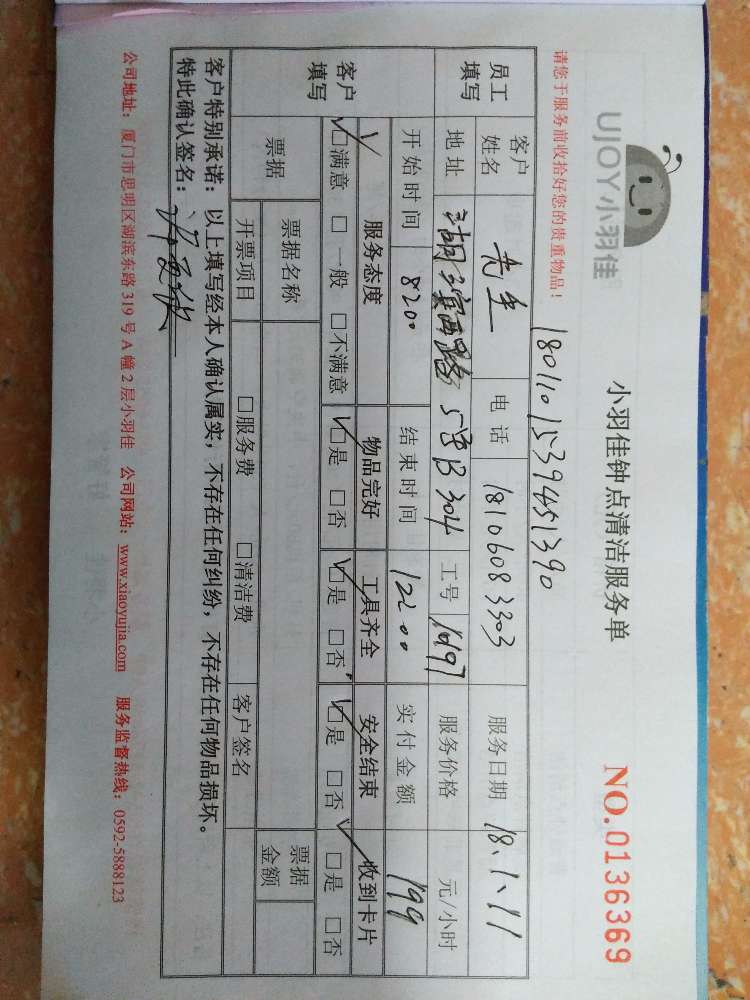 UJOY小羽佳
小羽佳钟点清洁服务单
NO.0136369
请您于服务前收拾好您的贵重物品！
1801101539451390
员工填写
客户姓名 先生 电话 18106083303 服务日期 18、1、11
地址 湖滨西路5号B304 工号 1697 服务价格 元/小时
开始时间 8200 结束时间 12200 实付金额 199
客户填写
服务态度 物品完好 工具齐全 安全结束 收到卡片
☑满意 □一般 □不满意 ☑是 □否 ☑是 □否 ☑是 □否 □是 □否
票据 票据名称 票据金额
开票项目 □服务费 □清洁费 客户签名
客户特别承诺：以上填写经本人确认属实，不存在任何纠纷，不存在任何物品损坏。
特此确认签名：
公司地址：厦门市思明区湖滨东路319号A幢2层小羽佳 公司网站：www.xiaoyujia.com 服务监督热线：0592-5888123